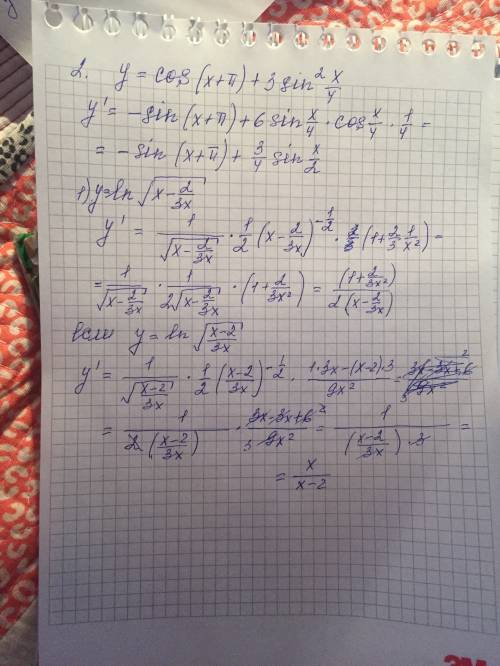 2. y = cos(x+π) + 3 sin² x/4
y' = -sin(x+π) + 6 sin x/4 · cos x/4 · 1/4 =
= -sin(x+π) + 3/4 sin x/2
1) y=ln √(x - 2/3x)
y' = 1/√(x - 2/3x) · 1/2 (x - 2/3x)^(-1/2) · (1 + 2/3 1/x²) =
= 1/√(x - 2/3x) · 1/(2√(x - 2/3x)) · (1 + 2/3x²) = (1 + 2/3x²)/(2(x - 2/3x))
если y = ln √((x-2)/3x)
y' = 1/√((x-2)/3x) · 1/2 ((x-2)/3x)^(-1/2) · (1·3x-(x-2)·3)/9x² =
= 1/(2((x-2)/3x)) · (3x-3x+6)/9x² = 1/(((x-2)/3x)·3) =
= x/(x-2)
3M